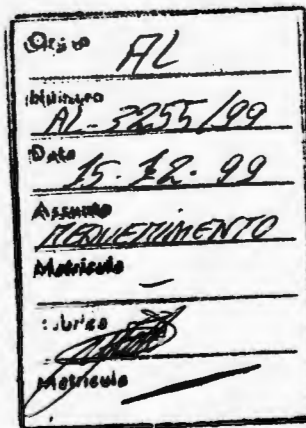 AL
Número
AL-3255/99
Data
15.12.99
Assunto
REQUERIMENTO
Matrícula
-
Rubrica
Matrícula